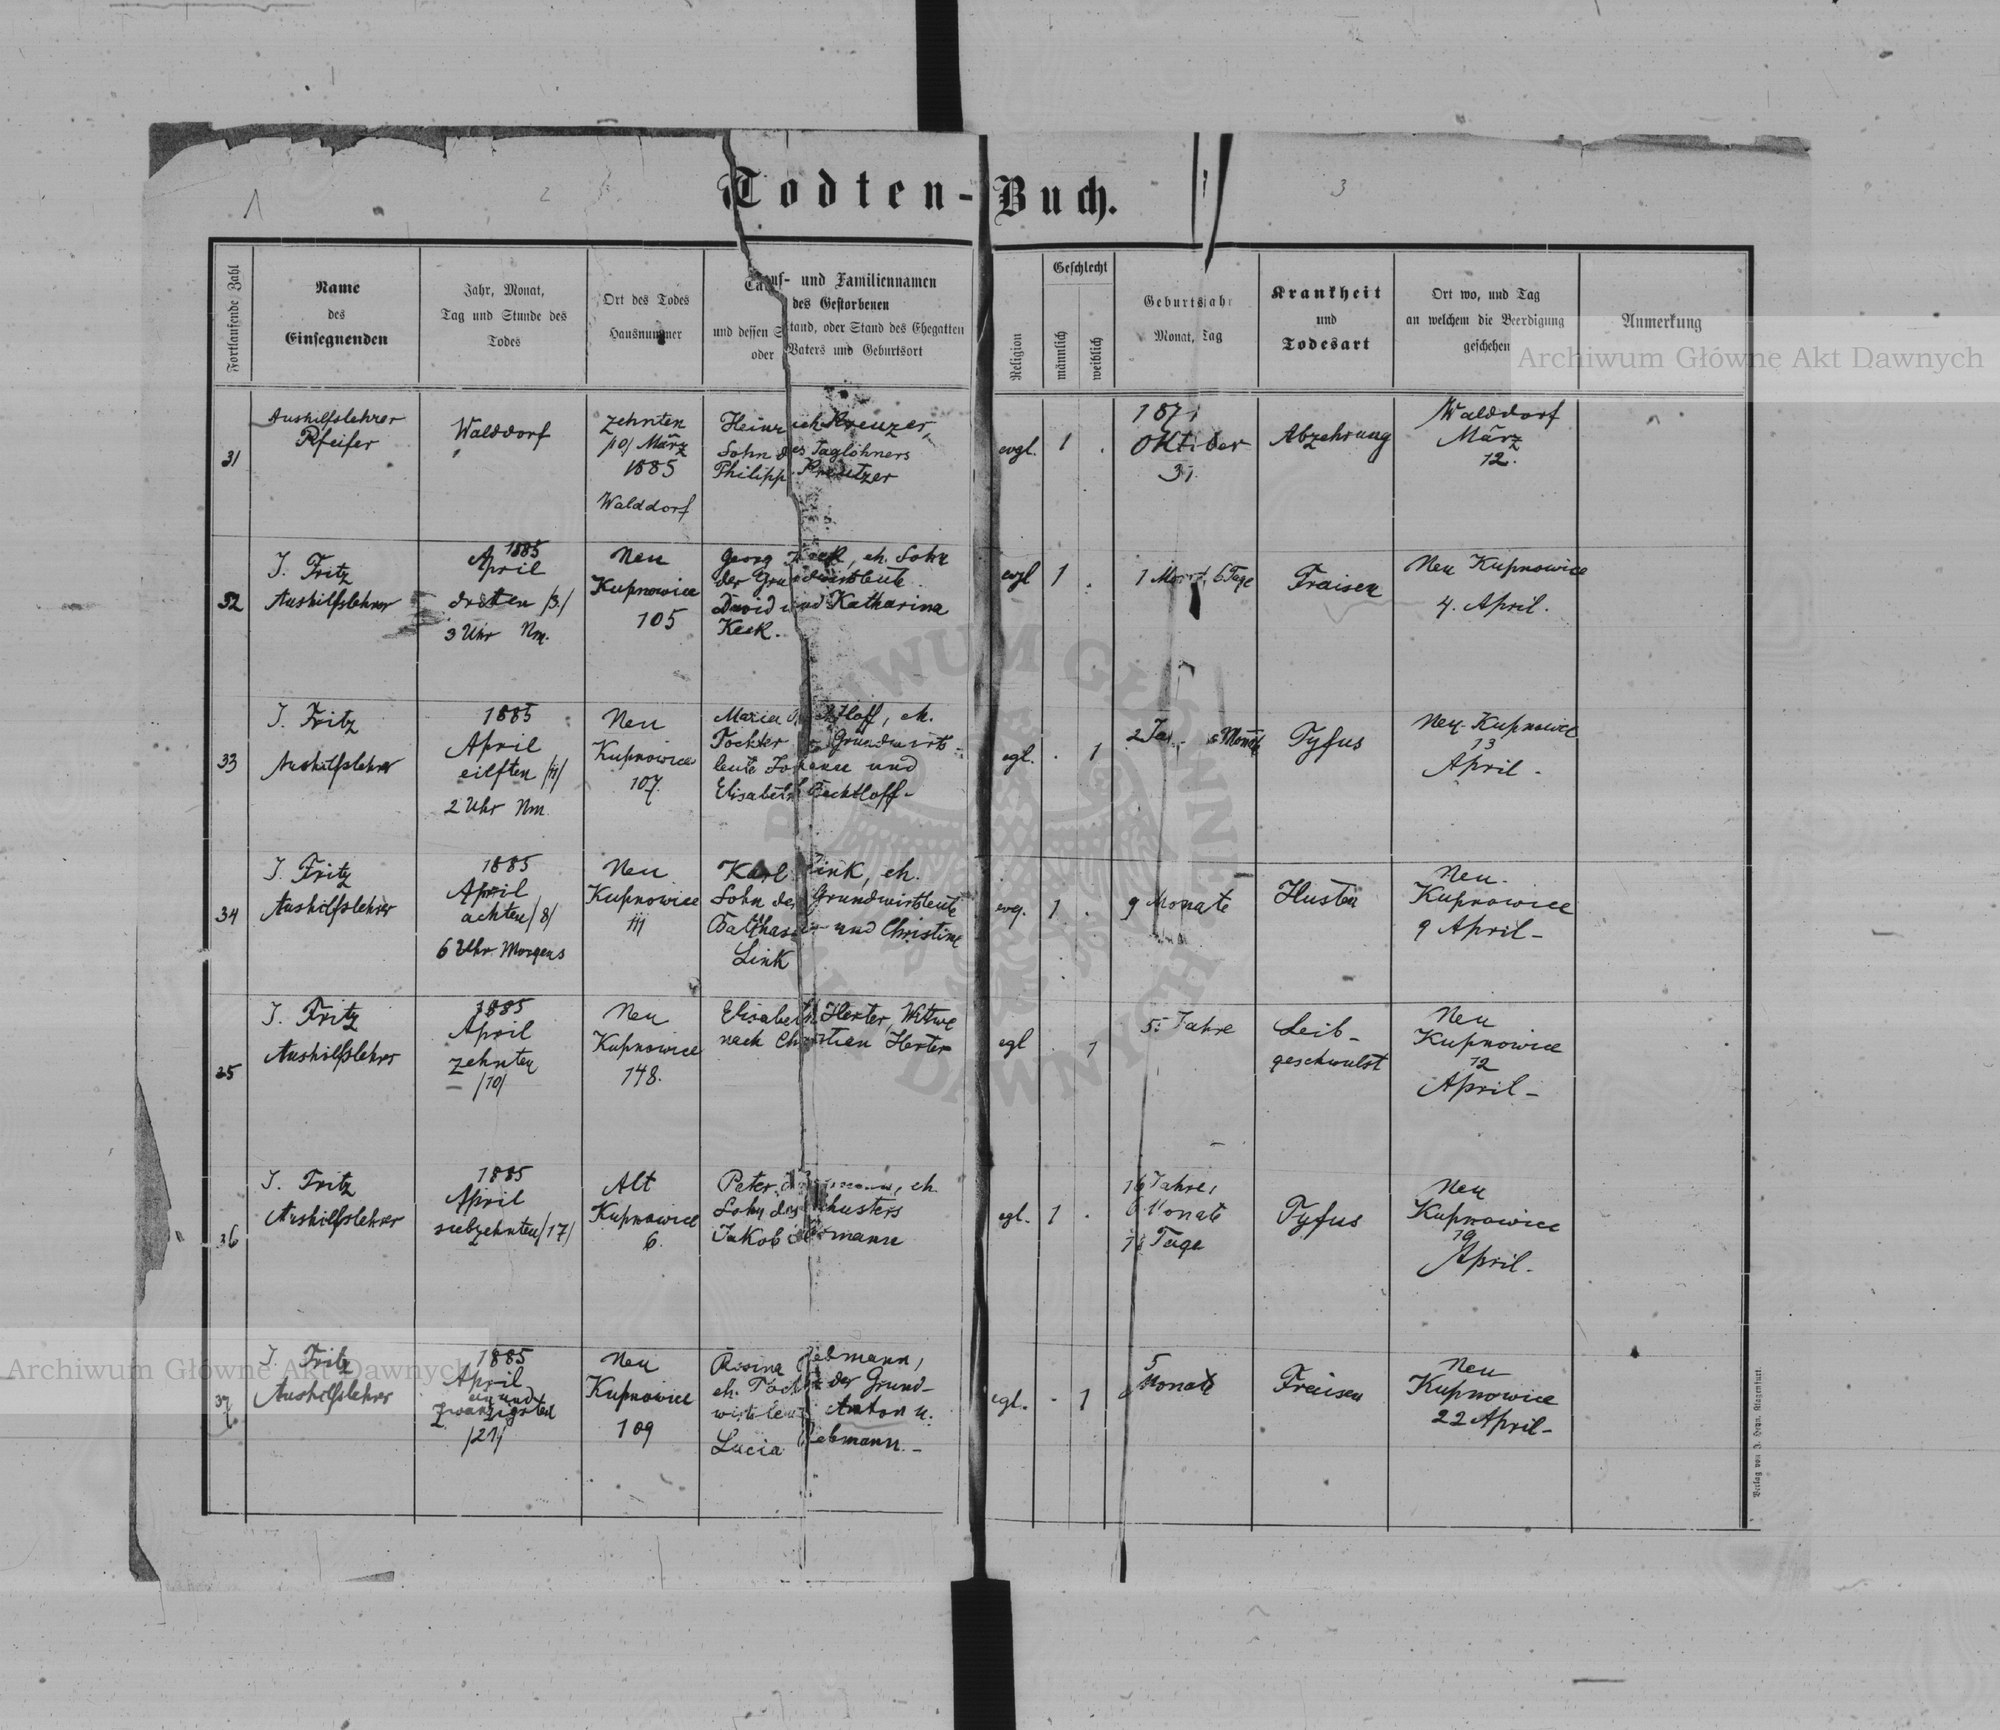 1
2
3
Todten-Buch.
Fortlaufende Zahl
Name
des
Einsegnenden
Jahr, Monat,
Tag und Stunde des
Todes
Ort des Todes
Hausnummer
Tauf- und Familiennamen
des Gestorbenen
und dessen Stand, oder Stand des Ehegatten
oder Vaters und Geburtsort
Religion
Geschlecht
männlich
weiblich
Geburtsjahr
Monat, Tag
Krankheit
und
Todesart
Ort wo, und Tag
an welchem die Beerdigung
geschehen
Anmerkung
Archiwum Główne Akt Dawnych
31
Aushilfslehrer
Pfeifer
Walddorf
zehnten
/10/ März
1885
Walddorf
Heinrich Kreuzer,
Sohn des Taglöhners
Philipp Kreutzer
evgl.
1
.
187
Oktober
31.
Abzehrung
Walddorf
März
12.
32
J. Fritz
Aushilfslehrer
1885
April
dritten /3./
3 Uhr Nm.
Neu
Kupnowice
105
Georg Keck, eh. Sohn
der Grundwirtsleute
David und Katharina
Keck.
evgl
1
.
1 Monat, 6 Tage
Fraisen
Neu Kupnowice
4. April.
33
J. Fritz
Aushilfslehrer
1885
April
eilften /11/
2 Uhr Nm
Neu
Kupnowice
107.
Maria Bechtloff, eh.
Tochter der Grundwirts-
leute Johann und
Elisabeth Bechtloff-
egl.
.
1
2 Monate
Tyfus
Neu-Kupnowice
13
April -
34
J. Fritz
Aushilfslehrer
1885
April
achten /8/
6 Uhr Morgens
Neu
Kupnowice
111
Karl Link, eh.
Sohn der Grundwirtsleute
Balthasar und Christine
Link
evg.
1
.
9 Monate
Husten
Neu-
Kupnowice
9 April-
35
J. Fritz
Aushilfslehrer
1885
April
zehnten
/10/
Neu
Kupnowice
148.
Elisabeth Herter, Witwe
nach Christian Herter
egl
.
1
Jahre
Leib-
geschwulst
Neu
Kupnowice
12
April-
36
J. Fritz
Aushilfslehrer
1885
April
siebzehnten /17/
Alt
Kupnowice
6.
Peter, eh
Sohn des Schusters
Jakob
egl.
1
.
16 Jahre,
6 Monate
Tage
Tyfus
Neu
Kupnowice
19
April.
37
J. Fritz
Aushilfslehrer
1885
April
ein und
zwanzigsten
/21/
Neu
Kupnowice
109
Rosina Rebmann,
eh. Tochter der Grund-
wirtsleute Anton u.
Lucia Rebmann.-
egl.
.
1
5
Monate
Fraisen
Neu
Kupnowice
22 April-
Archiwum Główne Akt Dawnych
ARCHIWUM GŁÓWNE AKT DAWNYCH
Verlag von J. Heyn, Klagenfurt.